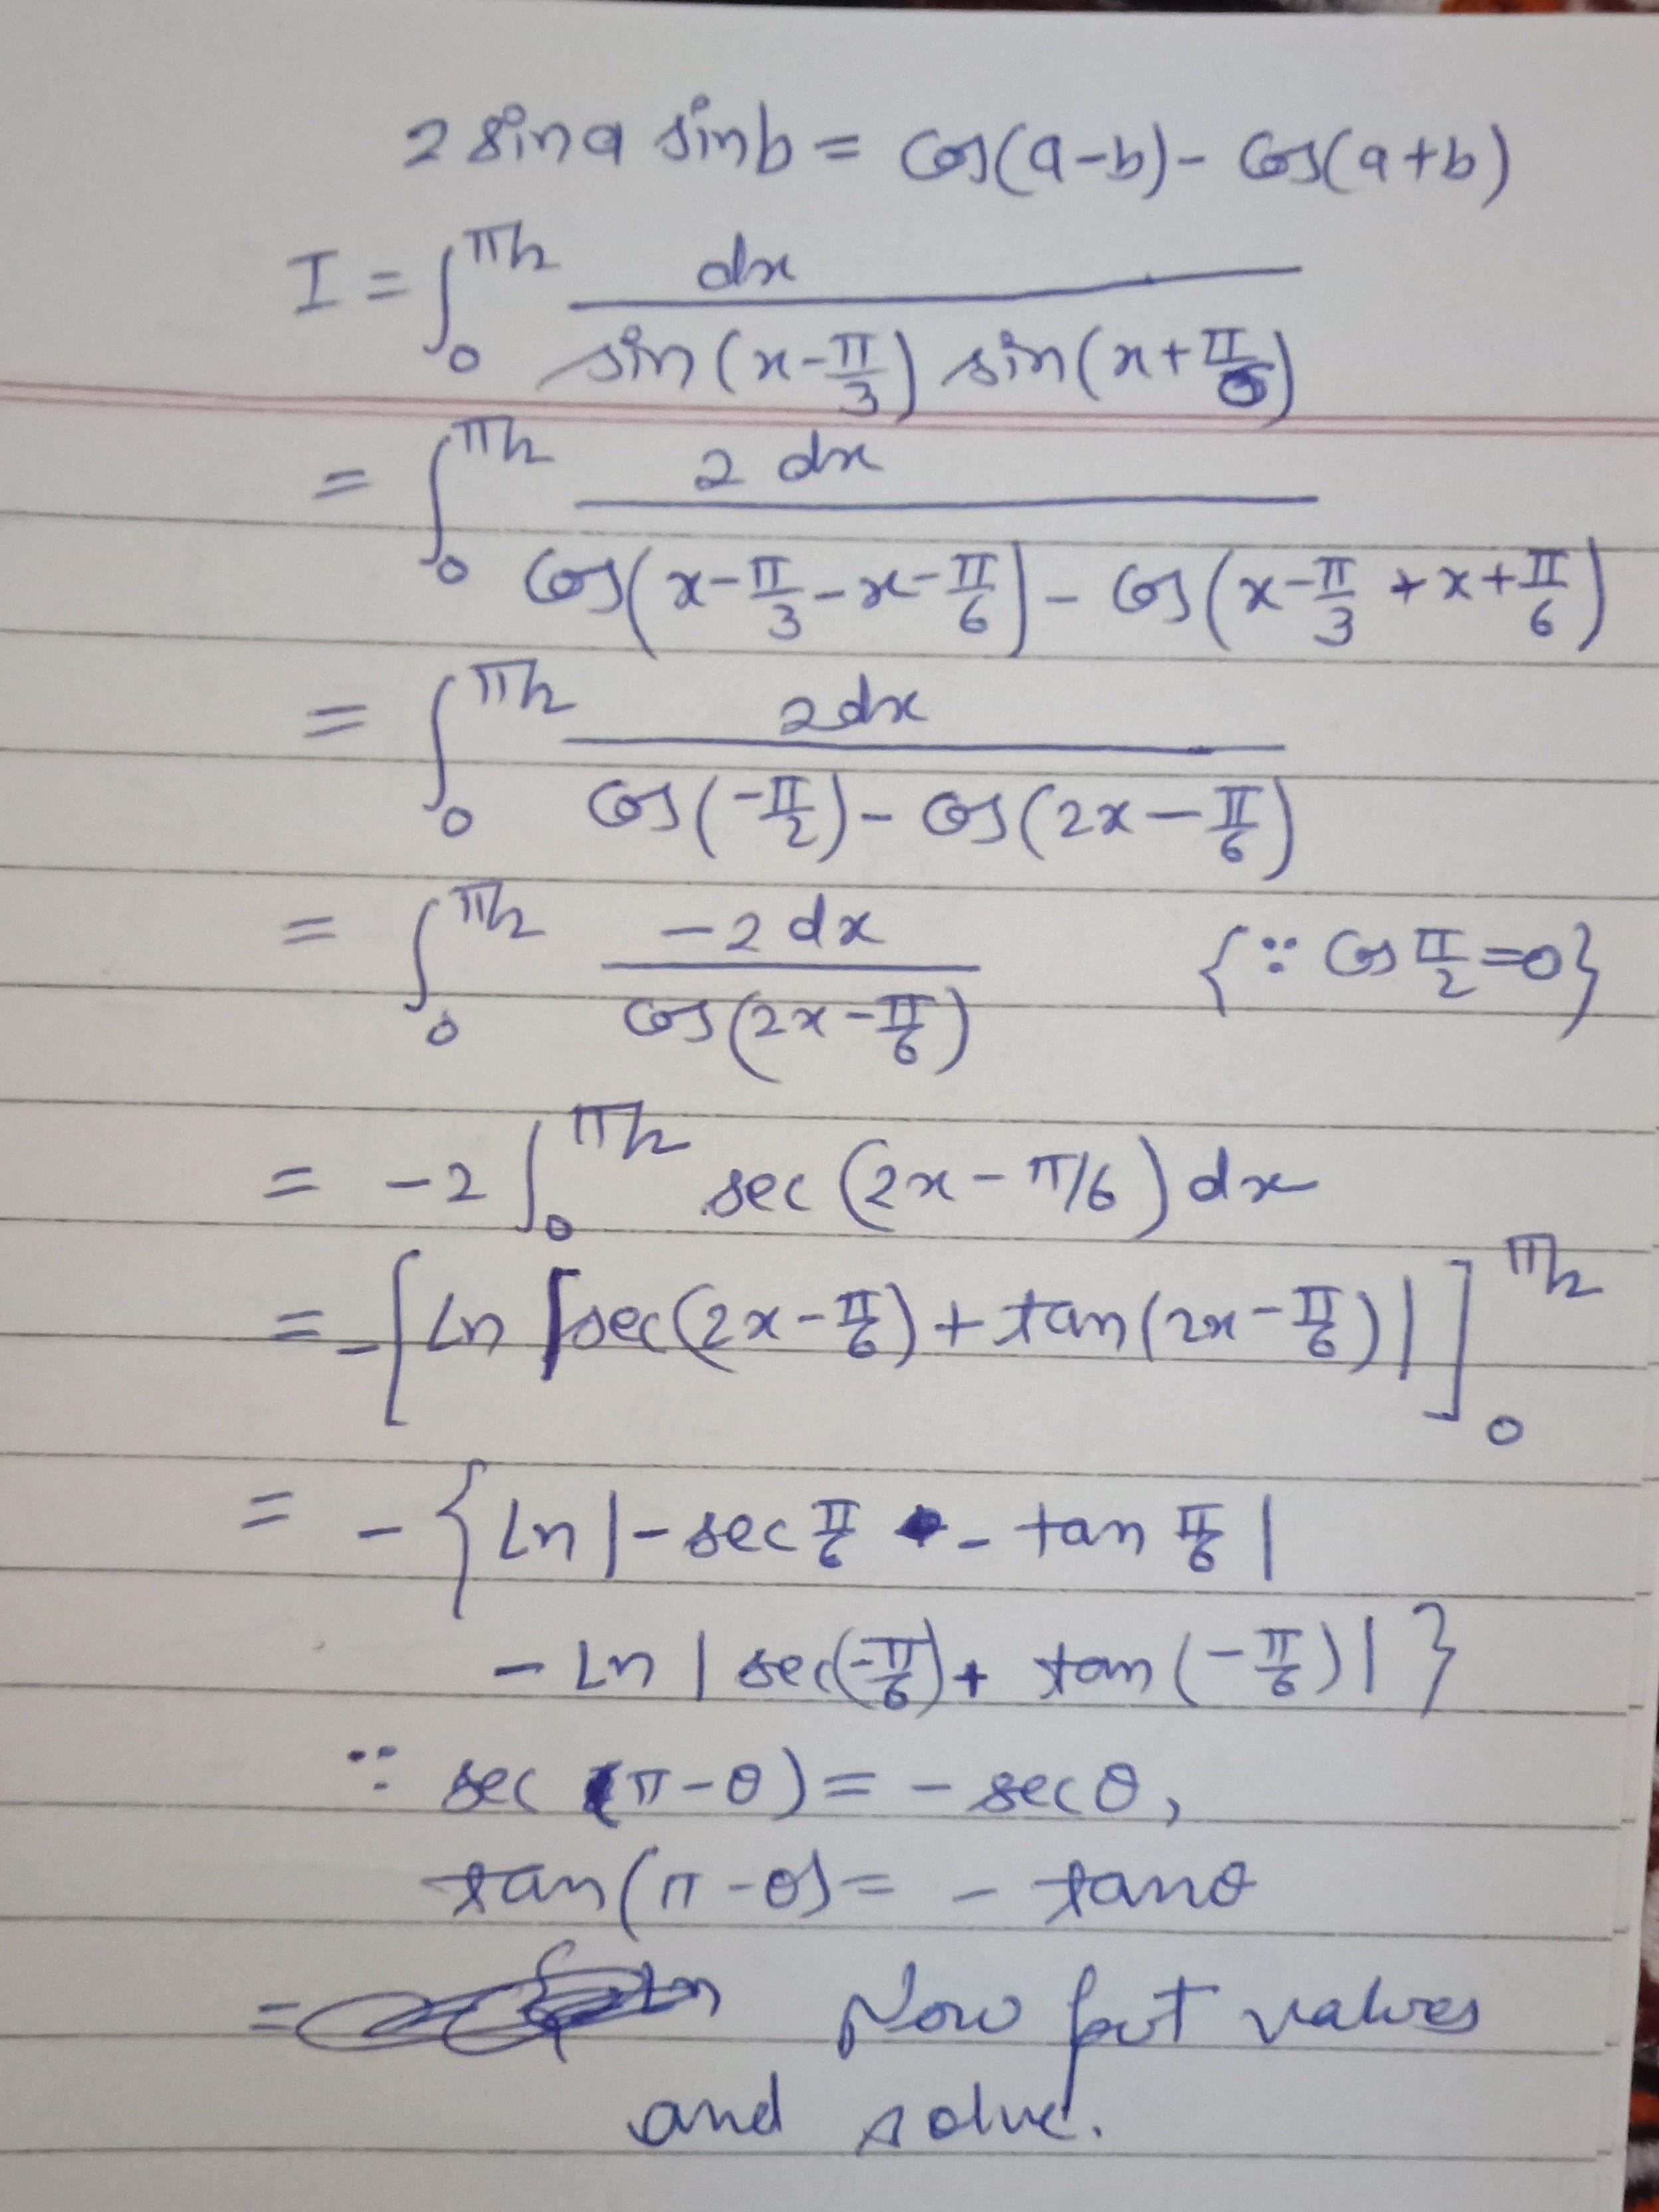 2 sin a sin b = cos(a-b) - cos(a+b)
I = ∫₀^(π/2) dx / (sin(x-π/3) sin(x+π/6))
= ∫₀^(π/2) 2 dx / (cos(x-π/3-x-π/6) - cos(x-π/3+x+π/6))
= ∫₀^(π/2) 2dx / (cos(-π/2) - cos(2x-π/6))
= ∫₀^(π/2) -2 dx / cos(2x-π/6) {∵ cos π/2 = 0}
= -2 ∫₀^(π/2) sec(2x-π/6) dx
= -[Ln |sec(2x-π/6) + tan(2x-π/6)|]₀^(π/2)
= -{Ln |-sec π/6 - tan π/6|
- Ln | sec(-π/6) + tan(-π/6)| }
∵ sec (π-θ) = - sec θ,
tan(π-θ) = - tan θ
= Now put values
and solve.